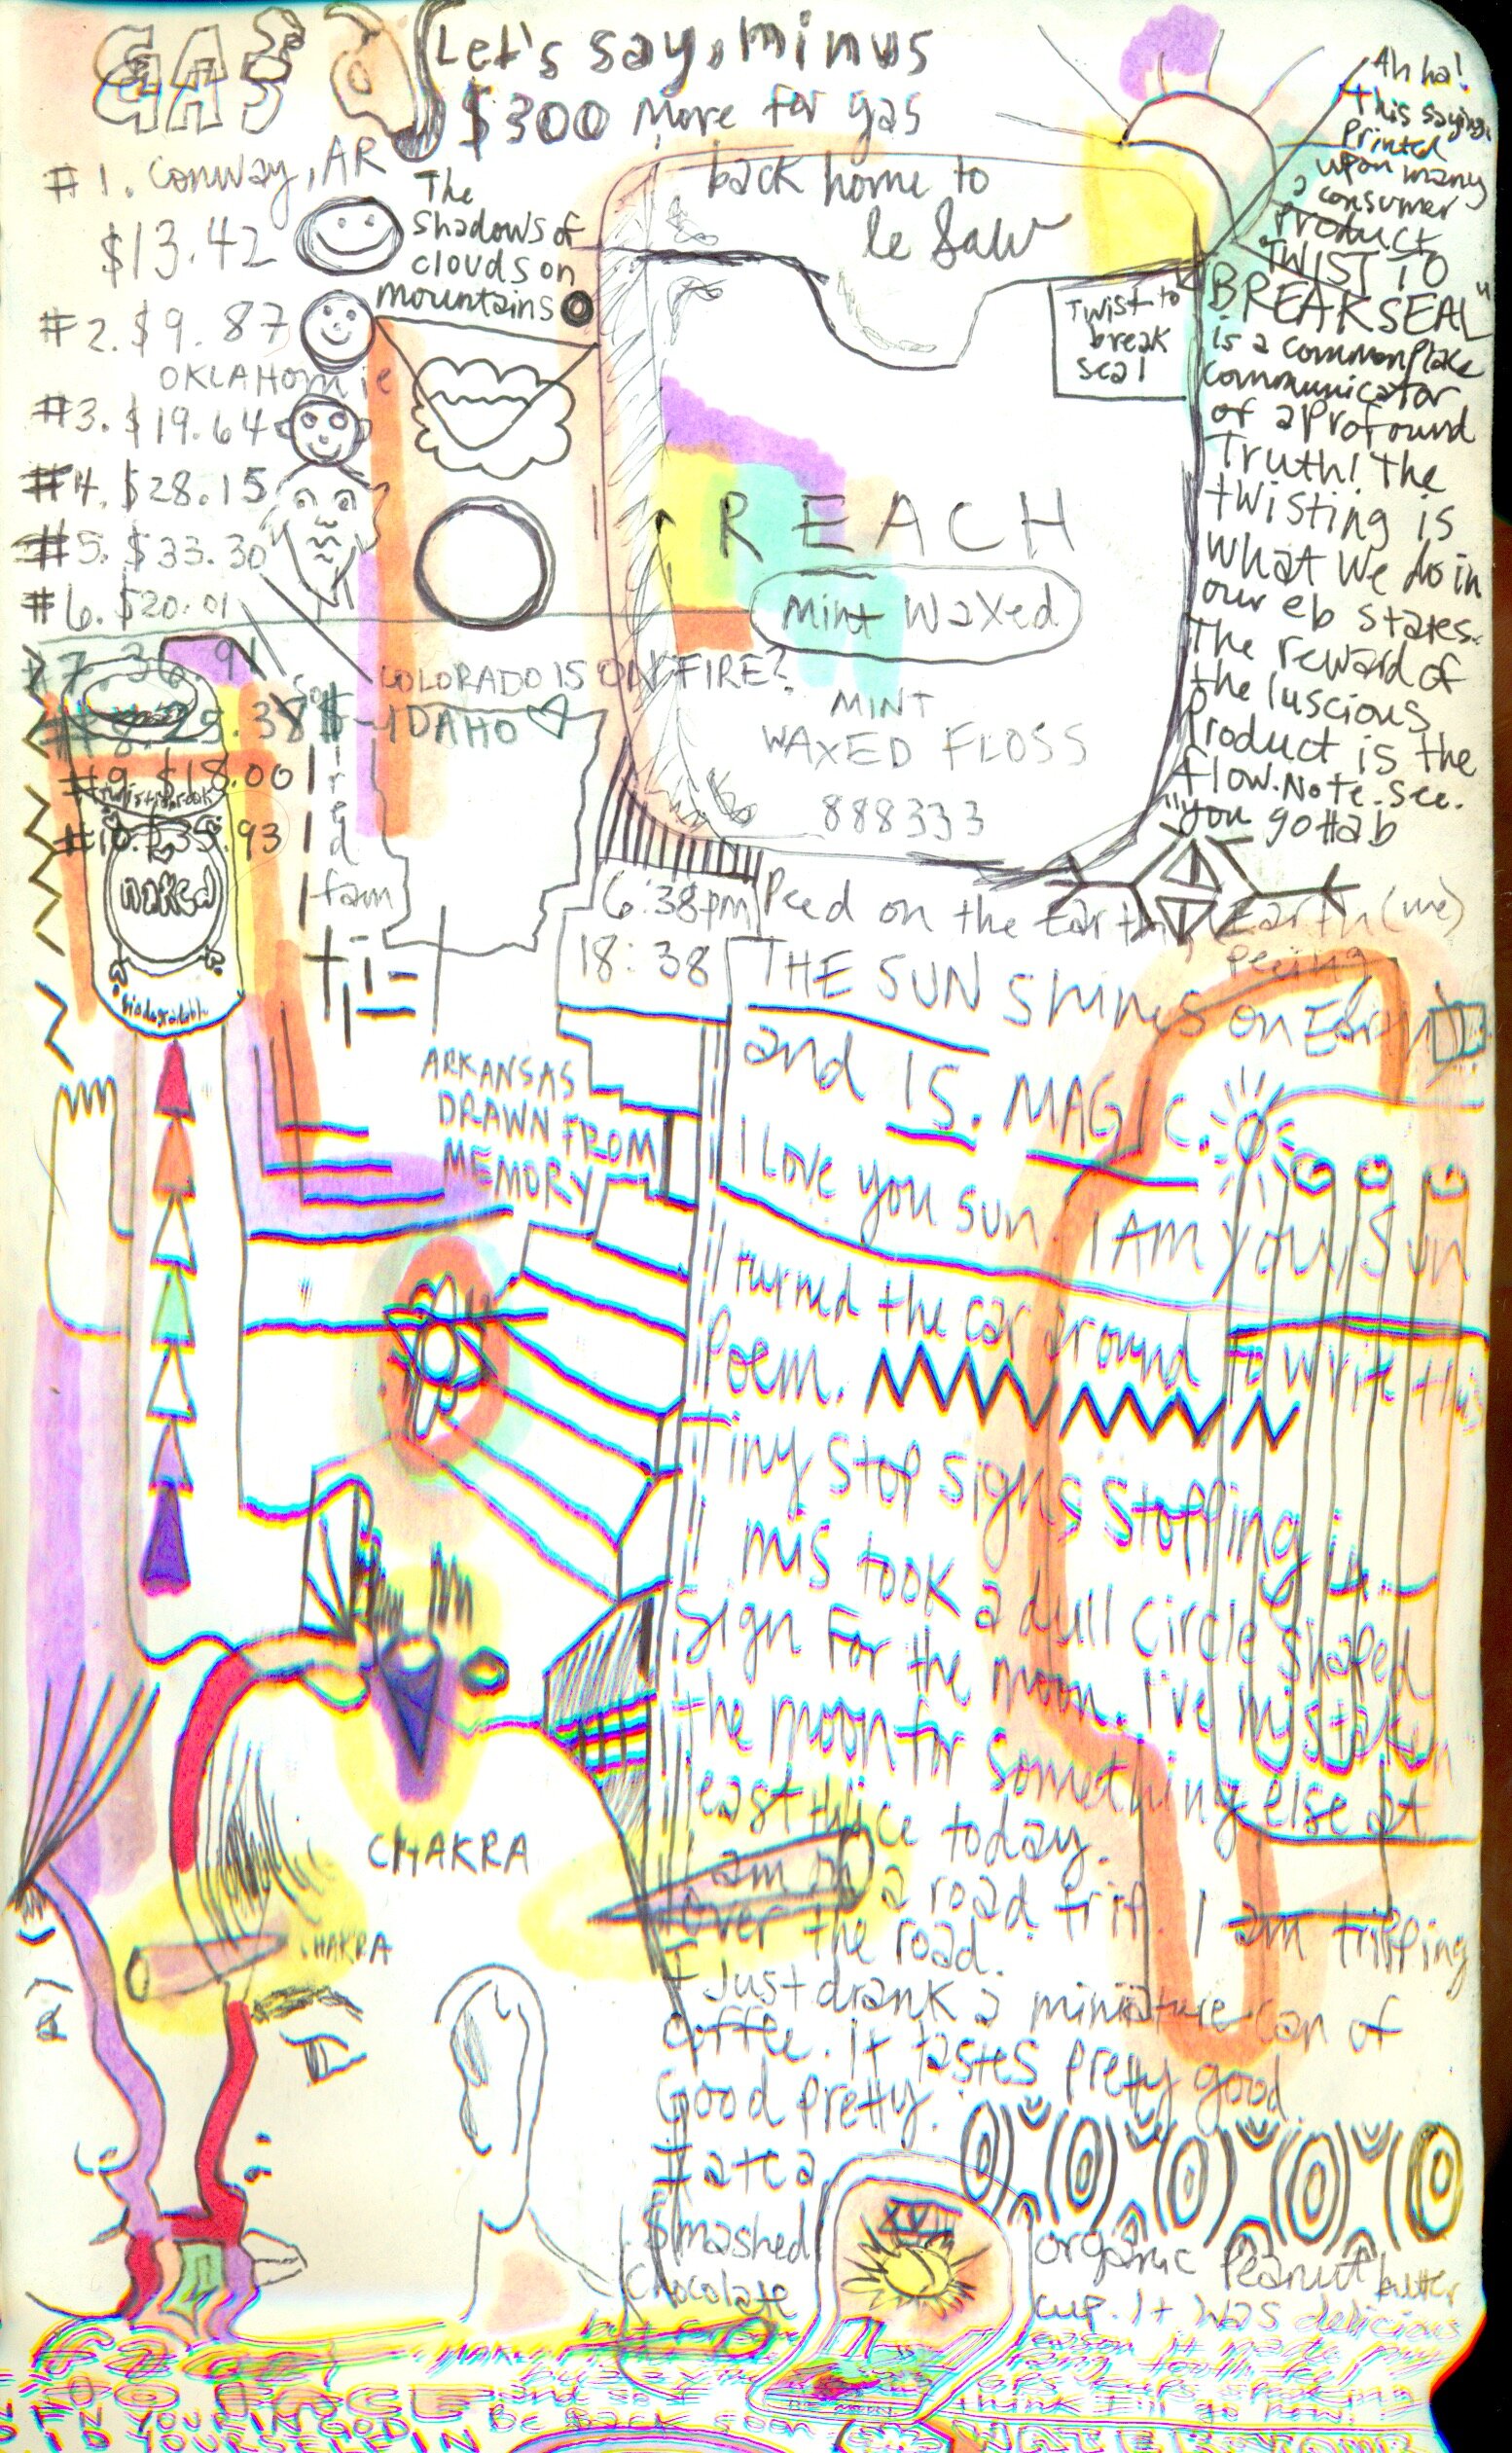 GAS
Let's say, minus
$300 more for gas
back home to
le Saw
#1. Conway, AR
$13.42
#2. $9.87
OKLAHOMie
#3. $19.64
#4. $28.15
#5. $33.30
#6. $20.01
#9. $18.00
The
Shadows of
clouds on
mountains
Twist to
break
seal
REACH
Mint Waxed
MINT
WAXED FLOSS
888333
Ah ha!
this saying,
Printed
upon many
a consumer
Product
"TWIST TO
BREAK SEAL"
is a commonplace
communicator
of a Profound
Truth! The
twisting is
what we do in
our eb states.
The reward of
the luscious
Product is the
flow. Note. See.
"you gottab
COLORADO IS ON FIRE?
IDAHO
farm
naked
biodegradable
6:38pm
18:38
Peed on the Earth, Earth (me)
Peeing
THE SUN Shines on Earth
and IS. MAGIC.
I Love you sun I AM your Sun
I turned the car around to write this
Poem.
Tiny stop signs stopping in
I mis took a dull circle shaped
sign for the moon. I've mistaken
the moon for something else at
least twice today.
I am on a road trip. I am tripping
over the road.
I Just drank a miniature can of
coffee. It tastes pretty good.
Good pretty.
I ate a
smashed
Chocolate
organic Peanut butter
cup. It was delicious
ARKANSAS
DRAWN FROM
MEMORY
CHAKRA
CHAKRA
be back soon
think I'll go now!
YOURSELF IN